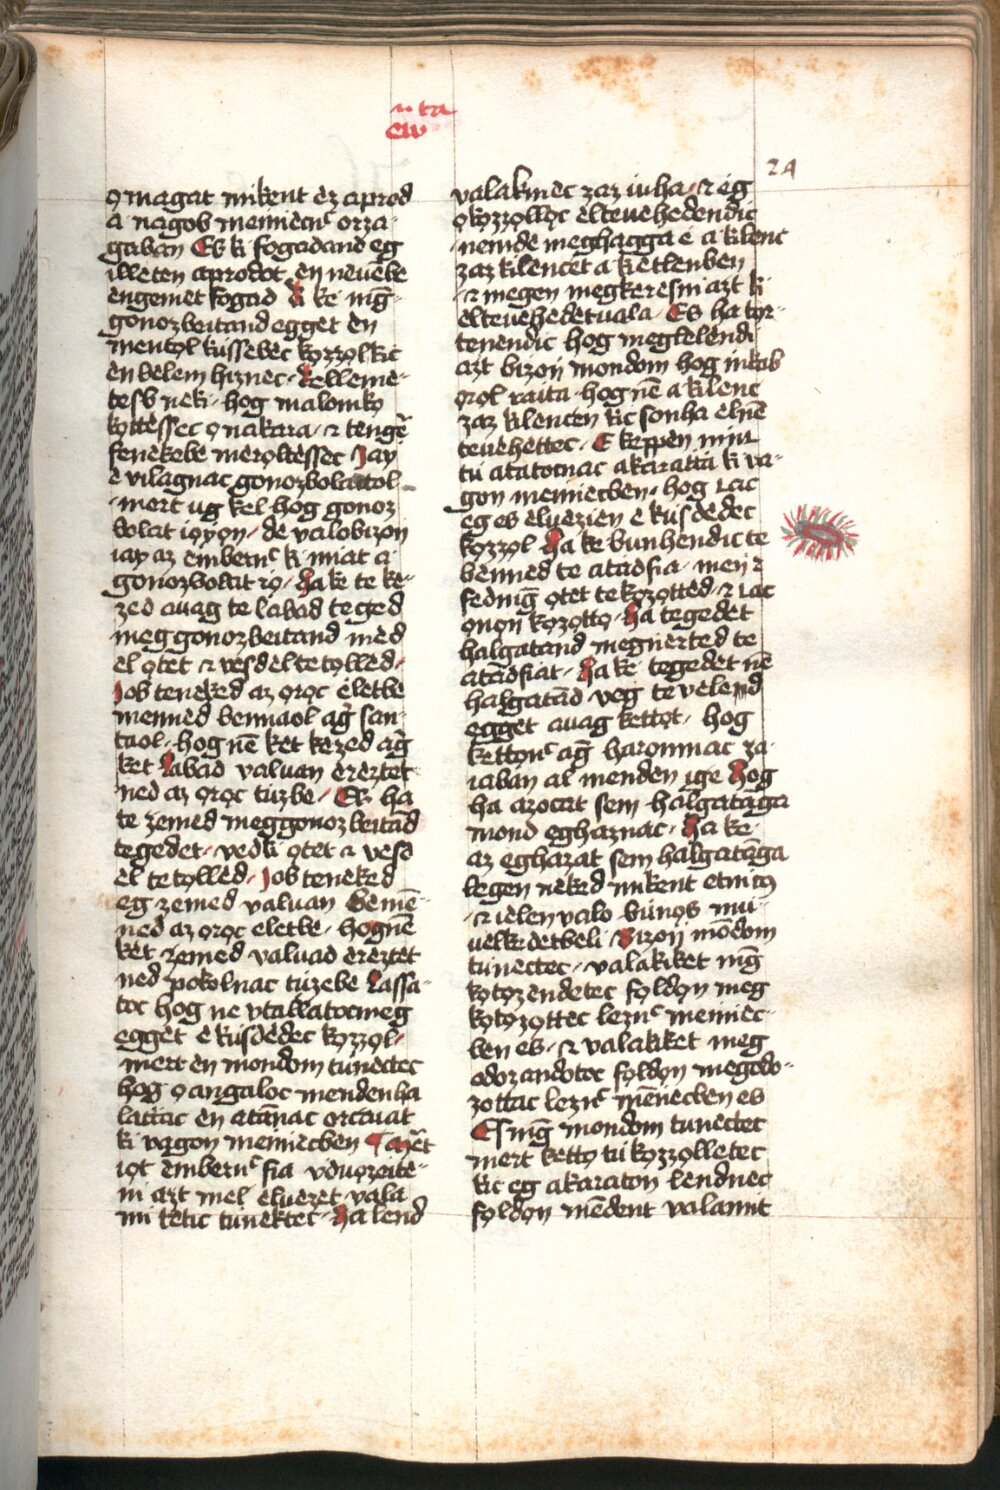 ta
ew
24
o magat mikent ez aprod
a nagob menniecnc orza
gaban Es ki fogadand eg
illeten aprodot en neuēbe
engemet fogad A ke mḡ
gonozbeitand egget en
mentol kussebec kozzolkic
en belem hiznec Kelleme
tesb neki hog malomko
kottessec o nakara ⁊ tengr̄
fenekebe meroltessec Iay
e vilagnac gonozbolattol
mert ug kel hog gonoz
bolat ioyon de valobizon
iay az embernc ki miat a
gonozbolat io Ha ke te ke
zed auag te labad teged
meggonozbeitand med
el otet ⁊ vesd el te tolled
Iob teneked az oroc eletbe
menned bennaol aḡ san
taol hog nē ket kezed aḡ
ket labad valuan ereztet
ned az oroc tuzbe Es ha
te zemed meggonozbeitād
tegedet vedki otet ⁊ vesd
el te tolled Iob teneked
eg zemed valuan bemē
ned az oroc eletbe hognē
ket zemed valuad ereztet
ned pokolnac tuzebe Lassa
toc hog ne vtallatocmeg
egget e kusdedec kozzol
mert en mondom tunectec
hog o angaloc mendenha
lattac en atānac orcaiat
ki vagon menniecben Mēt
iot embernc fia vduozeite
ni azt mel eluezet vala
mi tetic tunektec Ha lend
valakinec zaz iuha ⁊ eg
okozzolloc elteuehedendic
nemde meghagga e a kilenc
zaz kilencet a kietlenben
⁊ megen megkeresni azt ki
elteuehedetuala Es ha tor
tenendic hog meglelendi
azt bizon mondom hog inkab
orol raita hog nē a kilenc
zaz kilencen kic sonha elnē
teuehettec E keppen miu
tu atatocnac akaratia ki va
gon menniecben hog cac
eg es eluezien e kusdedec
kozzol Ha ke bunhendic te
benned te atadfia meny ⁊
fedmḡ otet te kozotted ⁊ cac
onon kozotto Ha tegedet
halgatand megnierted te
atādfiat Ha ke tegedet nē
halgatād veg te veled
egget auag kettot hog
kettonc aḡ haromnac za
iaban al menden ige Hog
ha azocat sem halgatāga
mond eghaznac Ha ke
az eghazat sem halgatāga
legen neked mikent etnico
⁊ ielenvalo bunos mu
uelkedetbeli Bizon mōdom
tunectec valakiket mḡ
kotozendetec foldon meg
kotozottec leznc menniec
ben es ⁊ valakiket meg
odozandotoc foldon megodo
zottac leznc mēnecben es
Esmḡ mondom tunectec
mert ketto tu kozzolletec
kic eg akaraton lendnec
foldon mēdent valamit